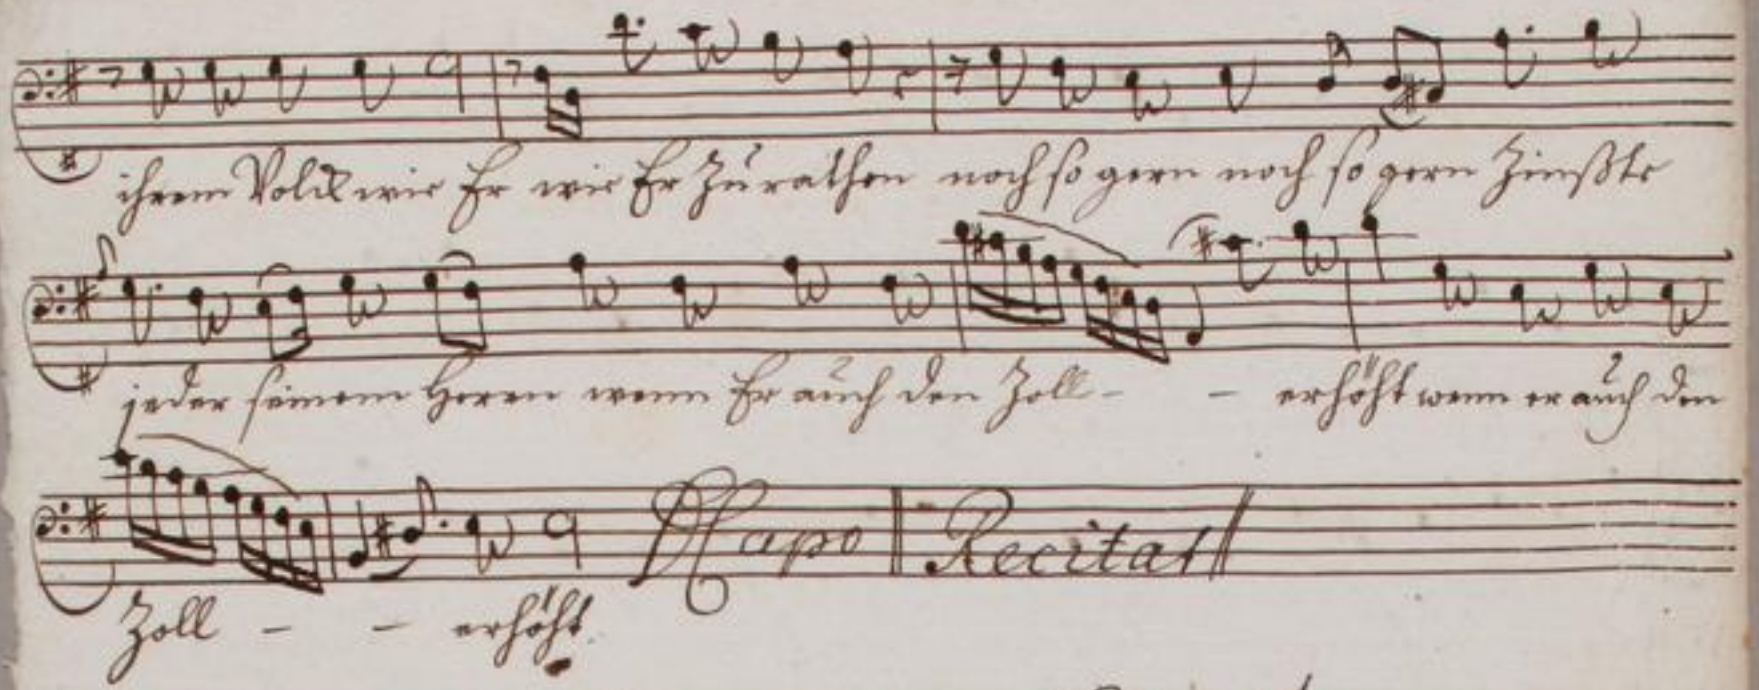 ihrem Volck wie Er wie Er zu rathen noch so gern noch so gern Zinßte
jeder seinem Herrn wenn Er auch den Zoll - - erhöht wenn er auch den
DCapo Recitat
Zoll - - erhöht